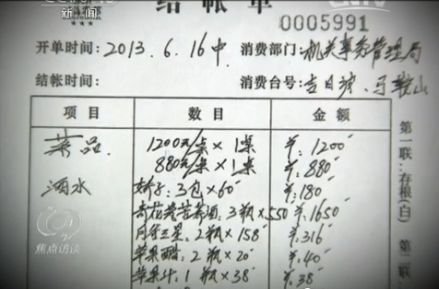 新闻
结帐单
0005991
开单时间：2013.6.16中 消费部门：机关事务管理局
结帐时间： 消费台号：吉日坡、马鞍山
项目 数目 金额
菜品 1200元/桌×1桌 ¥：1200
880元/桌×1桌 ¥：880
酒水 3包×60 ¥：180
3瓶×550 ¥：1650
2瓶×158 ¥：316
苹果醋：2瓶×20 ¥：40
苹果汁：1瓶×38 ¥：38
第一联：存根(白) 第二联
焦点访谈